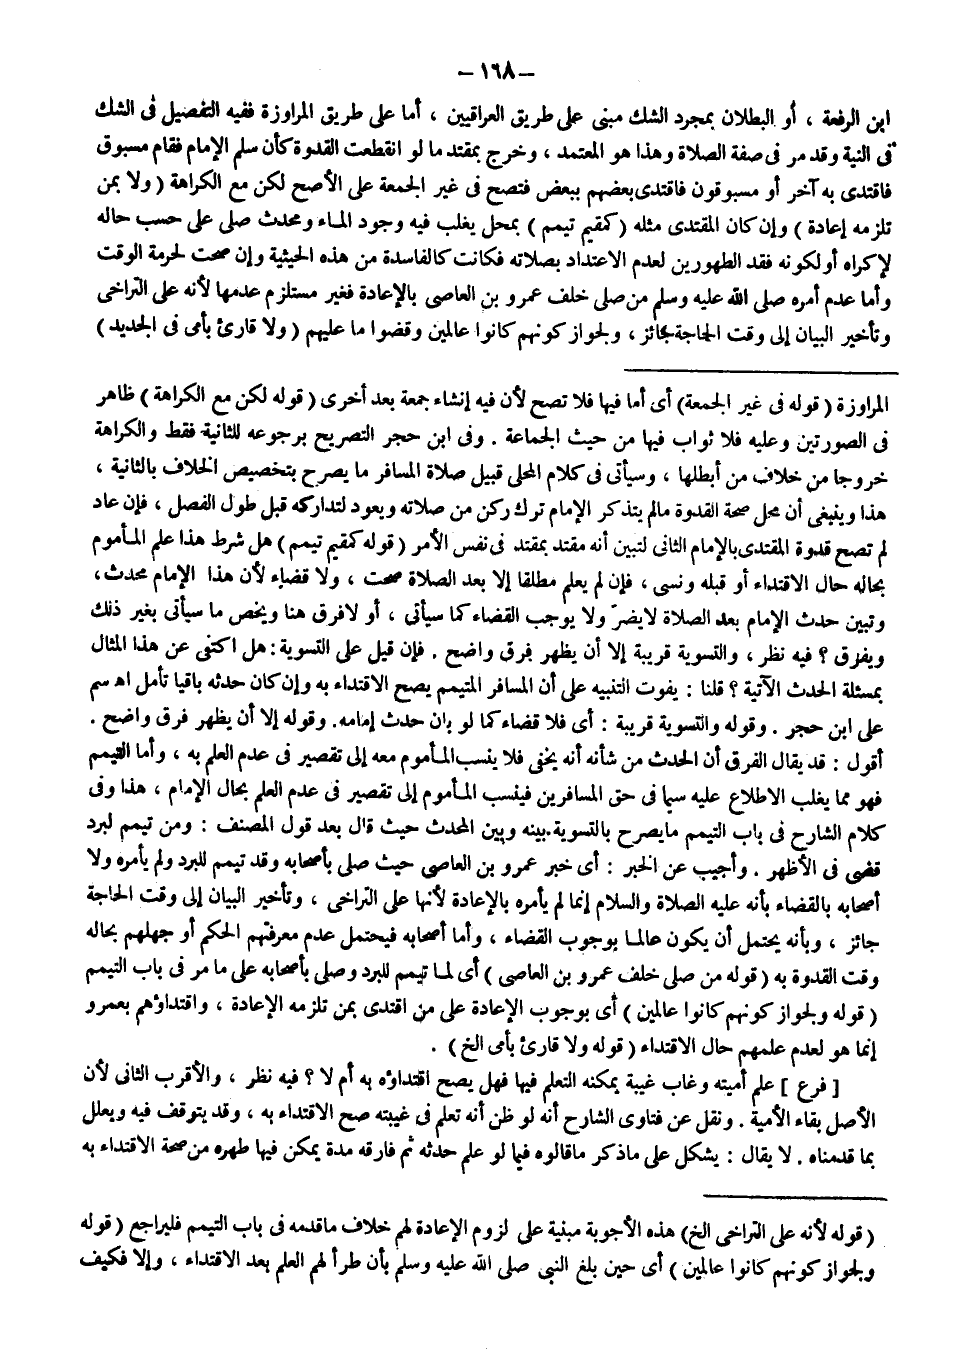 – ١٦٨ –
ابن الرفعة ، أو البطلان بمجرد الشك مبنى على طريق العراقيين ، أما على طريق المراوزة ففيه التفصيل فى الشك
فى النية وقد مر فى صفة الصلاة وهذا هو المعتمد ، وخرج بمقتد ما لو انقطعت القدوة كأن سلم الإمام فقام مسبوق
فاقتدى به آخر أو مسبوقون فاقتدى بعضهم ببعض فتصح فى غير الجمعة على الأصح لكن مع الكراهة ( ولا بمن
تلزمه إعادة ) وإن كان المقتدى مثله ( كمقيم تيمم ) بمحل يغلب فيه وجود الماء ومحدث صلى على حسب حاله
لإكراه أو لكونه فقد الطهورين لعدم الاعتداد بصلاته فكانت كالفاسدة من هذه الحيثية وإن صحت لحرمة الوقت
وأما عدم أمره صلى الله عليه وسلم من صلى خلف عمرو بن العاصى بالإعادة فغير مستلزم عدمها لأنه على التراخى
وتأخير البيان إلى وقت الحاجة جائز ، ولجواز كونهم كانوا عالمين وقضوا ما عليهم ( ولا قارئ بأمى فى الجديد )
المراوزة ( قوله فى غير الجمعة) أى أما فيها فلا تصح لأن فيه إنشاء جمعة بعد أخرى ( قوله لكن مع الكراهة ) ظاهر
فى الصورتين وعليه فلا ثواب فيها من حيث الجماعة . وفى ابن حجر التصريح برجوعه للثانية فقط والكراهة
خروجا من خلاف من أبطلها ، وسيأتى فى كلام المحلى قبيل صلاة المسافر ما يصرح بتخصيص الخلاف بالثانية ،
هذا وينبغى أن محل صحة القدوة مالم يتذكر الإمام ترك ركن من صلاته ويعود لتداركه قبل طول الفصل ، فإن عاد
لم تصح قدوة المقتدى بالإمام الثانى لتبين أنه مقتد بمقتد فى نفس الأمر ( قوله كمقيم تيمم) هل شرط هذا علم المأموم
بحاله حال الاقتداء أو قبله ونسى ، فإن لم يعلم مطلقا إلا بعد الصلاة صحت ، ولا قضاء لأن هذا الإمام محدث ،
وتبين حدث الإمام بعد الصلاة لايضرّ ولا يوجب القضاء كما سيأتى ، أو لافرق هنا ويخص ما سيأتى بغير ذلك
ويفرق ؟ فيه نظر ، والتسوية قريبة إلا أن يظهر فرق واضح . فإن قيل على التسوية : هل اكتفى عن هذا المثال
بمسئلة الحدث الآتية ؟ قلنا : يفوت التنبيه على أن المسافر المتيمم يصح الاقتداء به وإن كان حدثه باقيا تأمل اه سم
على ابن حجر . وقوله والتسوية قريبة : أى فلا قضاء كما لو بان حدث إمامه. وقوله إلا أن يظهر فرق واضح .
أقول : قد يقال الفرق أن الحدث من شأنه أنه يخفى فلا ينسب المأموم معه إلى تقصير فى عدم العلم به ، وأما التيمم
فهو مما يغلب الاطلاع عليه سيما فى حق المسافرين فينسب المأموم إلى تقصير فى عدم العلم بحال الإمام ، هذا وفى
كلام الشارح فى باب التيمم مايصرح بالتسوية بينه وبين المحدث حيث قال بعد قول المصنف : ومن تيمم لبرد
قضى فى الأظهر . وأجيب عن الخبر : أى خبر عمرو بن العاصى حيث صلى بأصحابه وقد تيمم للبرد ولم يأمره ولا
أصحابه بالقضاء بأنه عليه الصلاة والسلام إنما لم يأمره بالإعادة لأنها على التراخى ، وتأخير البيان إلى وقت الحاجة
جائز ، وبأنه يحتمل أن يكون عالما بوجوب القضاء ، وأما أصحابه فيحتمل عدم معرفتهم الحكم أو جهلهم بحاله
وقت القدوة به ( قوله من صلى خلف عمرو بن العاصى ) أى لما تيمم للبرد وصلى بأصحابه على ما مر فى باب التيمم
( قوله ولجواز كونهم كانوا عالمين ) أى بوجوب الإعادة على من اقتدى بمن تلزمه الإعادة ، واقتداؤهم بعمرو
إنما هو لعدم علمهم حال الاقتداء ( قوله ولا قارئ بأمى الخ ) .
[ فرع ] علم أميته وغاب غيبة يمكنه التعلم فيها فهل يصح اقتداؤه به أم لا ؟ فيه نظر ، والأقرب الثانى لأن
الأصل بقاء الأمية . ونقل عن فتاوى الشارح أنه لو ظن أنه تعلم فى غيبته صح الاقتداء به ، وقد يتوقف فيه ويعلل
بما قدمناه . لا يقال : يشكل على ماذكر ماقالوه فيما لو علم حدثه ثم فارقه مدة يمكن فيها طهره من صحة الاقتداء به
( قوله لأنه على التراخى الخ) هذه الأجوبة مبنية على لزوم الإعادة لهم خلاف ماقدمه فى باب التيمم فليراجع ( قوله
ولجواز كونهم كانوا عالمين ) أى حين بلغ النبى صلى الله عليه وسلم بأن طرأ لهم العلم بعد الاقتداء ، وإلا فكيف